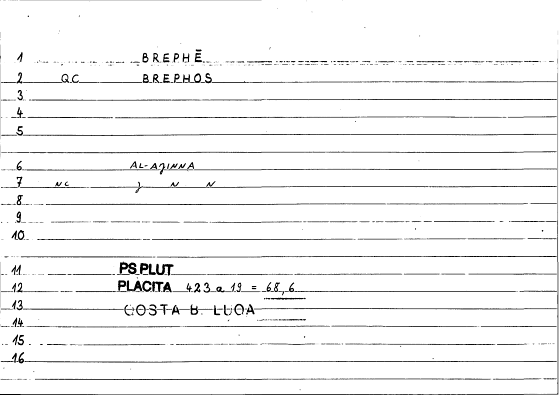 1 BREPHĒ
2 QC BREPHOS
3
4
5
6 AL-AǧINNA
7 NC ǧ N N
8
9
10
11 PS PLUT
12 PLACITA 423 a 19 = 68,6
13 COSTA B. LUQA
14
15
16